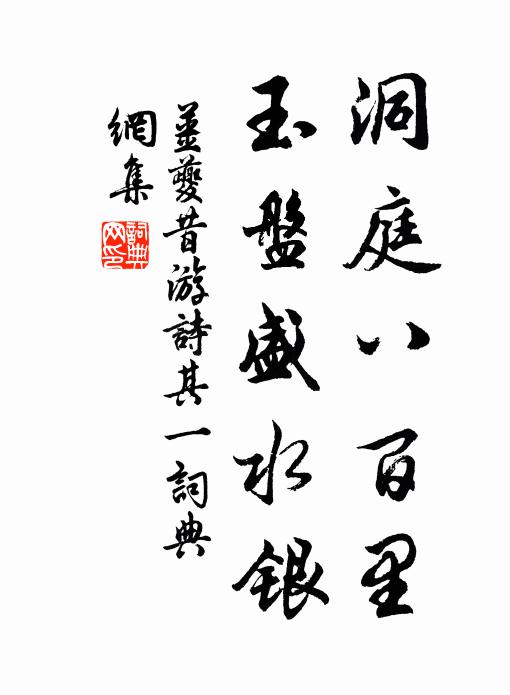 洞庭八百里
玉盤盛水銀
姜夔昔游詩其一詞典
網集
詞典网印